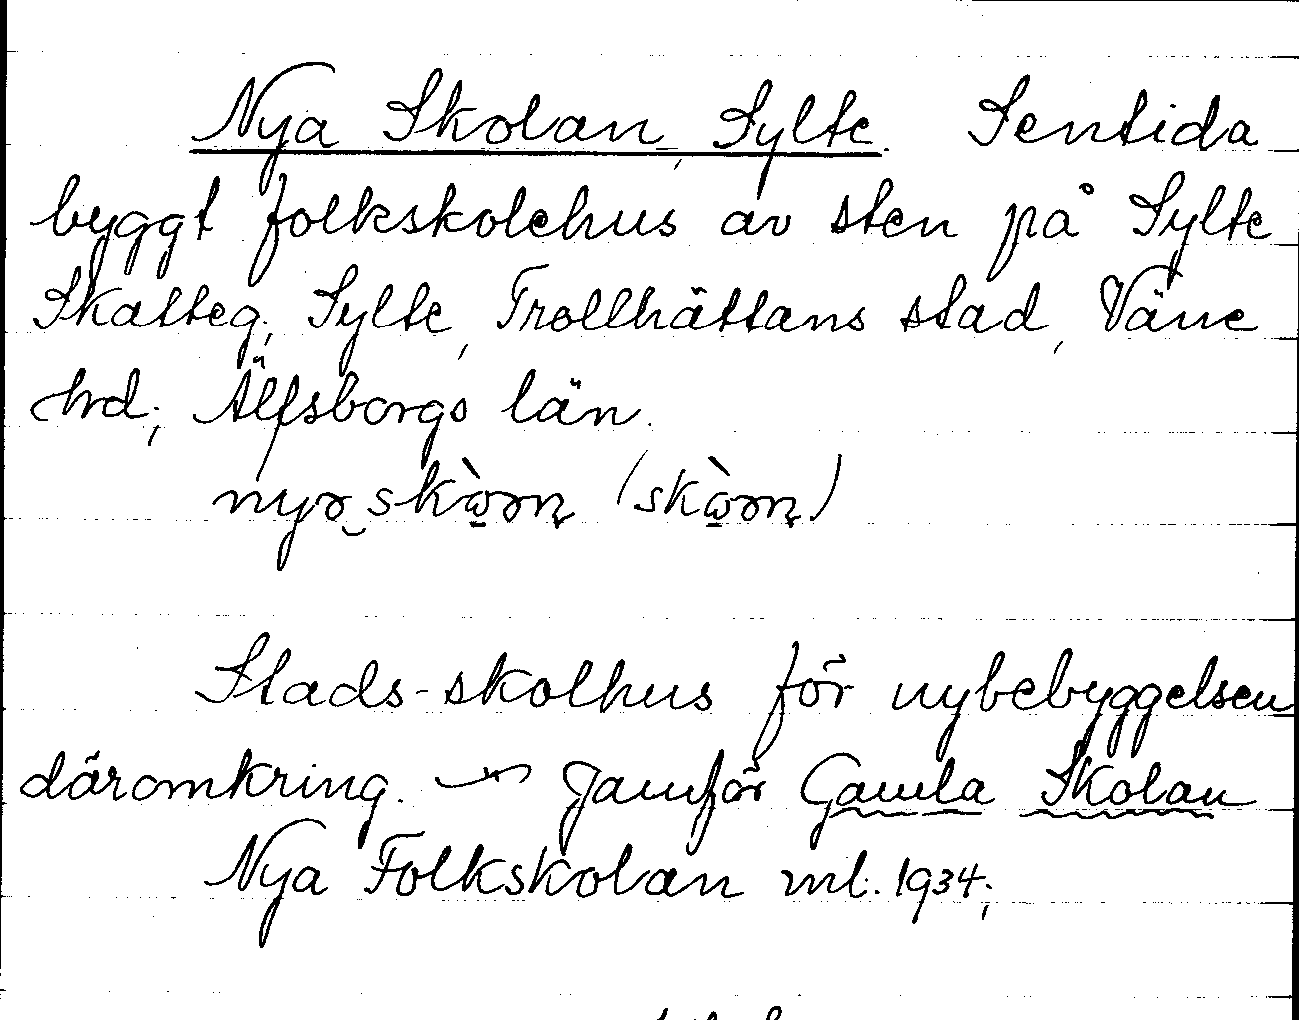 Nya Skolan, Sylte. Sentida
byggt folkskolehus av sten på Sylte
Skatteg; Sylte, Trollhättans stad, Väne
hrd; Älfsborgs län.
nyə‿skὼən̥ (skὼən̥)
Stads-skolhus för nybebyggelsen
däromkring. — Jämför Gamla Skolan
Nya Folkskolan ml. 1934;